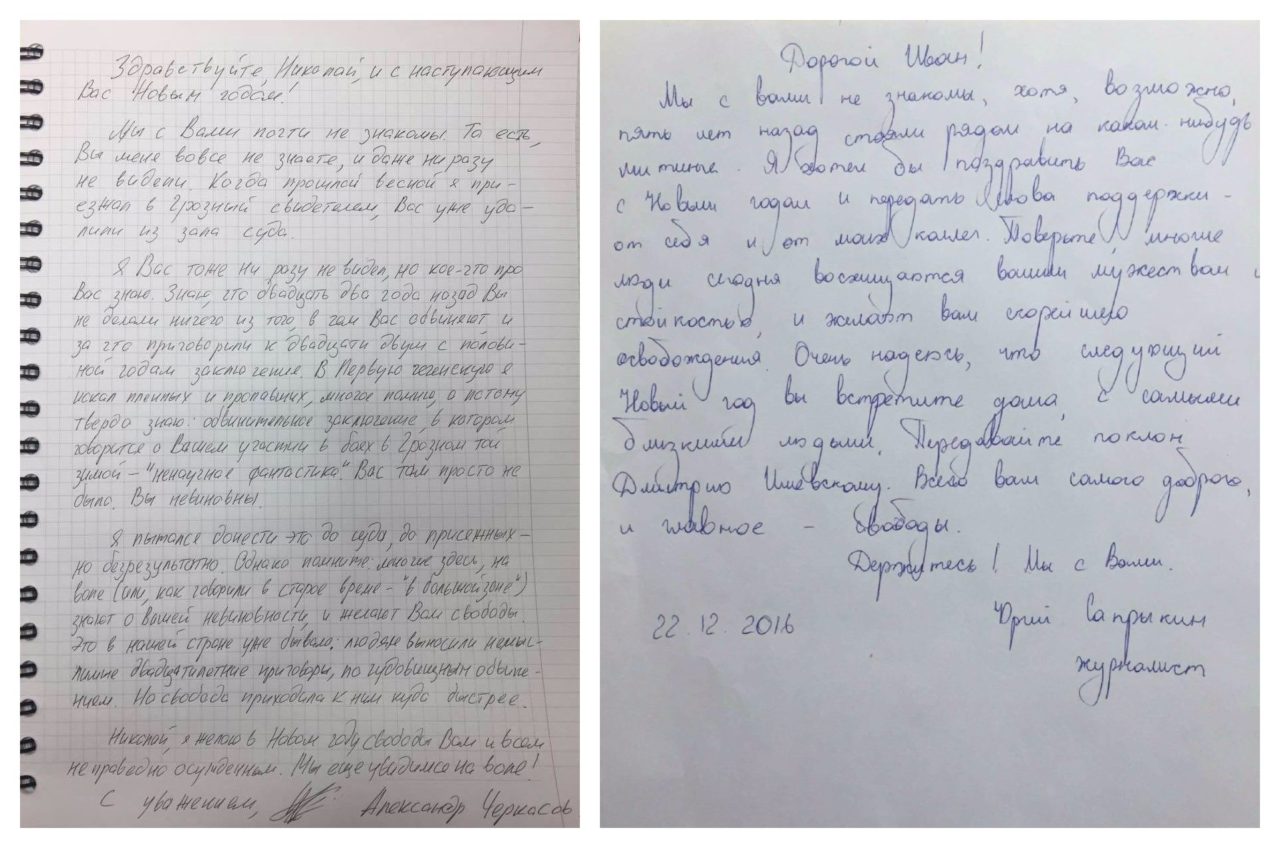 Здравствуйте, Николай, и с наступающим
Вас Новым годом!
Мы с Вами почти не знакомы. То есть,
Вы меня вовсе не знаете, и даже ни разу
не видели. Когда прошлой весной я при-
езжал в Грозный свидетелем, Вас уже уда-
лили из зала суда.
Я Вас тоже ни разу не видел, но кое-что про
Вас знаю. Знаю, что двадцать два года назад Вы
не делали ничего из того, в чем Вас обвиняют и
за что приговорили к двадцати двум с полови-
ной годам заключения. В Первую чеченскую я
искал пленных и пропавших, многое помню, а потому
твердо знаю: обвинительное заключение, в котором
говорится о Вашем участии в боях в Грозном той
зимой – "ненаучная фантастика". Вас там просто не
было. Вы невиновны.
Я пытался донести это до суда, до присяжных –
но безрезультатно. Однако помните: многие здесь, на
воле (или, как говорили в старое время – "в большой зоне")
знают о Вашей невиновности, и желают Вам свободы
Это в нашей стране уже бывало: людям выносили немыс-
лимые двадцатилетние приговоры, по чудовищным обвине-
ниям. Но свобода приходила к ним куда быстрее.
Николай, я желаю в Новом году свободы Вам и всем
неправедно осужденным. Мы еще увидимся на воле!
С уважением, Александр Черкасов
Дорогой Иван!
Мы с вами не знакомы, хотя, возможно,
пять лет назад стояли рядом на каком-нибудь
митинге. Я хотел бы поздравить Вас
с Новым годом и передать слова поддержки –
от себя и от моих коллег. Поверьте, многие
люди сегодня восхищаются вашим мужеством и
стойкостью, и желают вам скорейшего
освобождения. Очень надеюсь, что следующий
Новый год вы встретите дома, с самыми
близкими людьми. Передавайте поклон
Дмитрию Ишевскому. Всего вам самого доброго,
и главное – свободы.
Держитесь! Мы с Вами.
22.12.2016 Юрий Сапрыкин
журналист